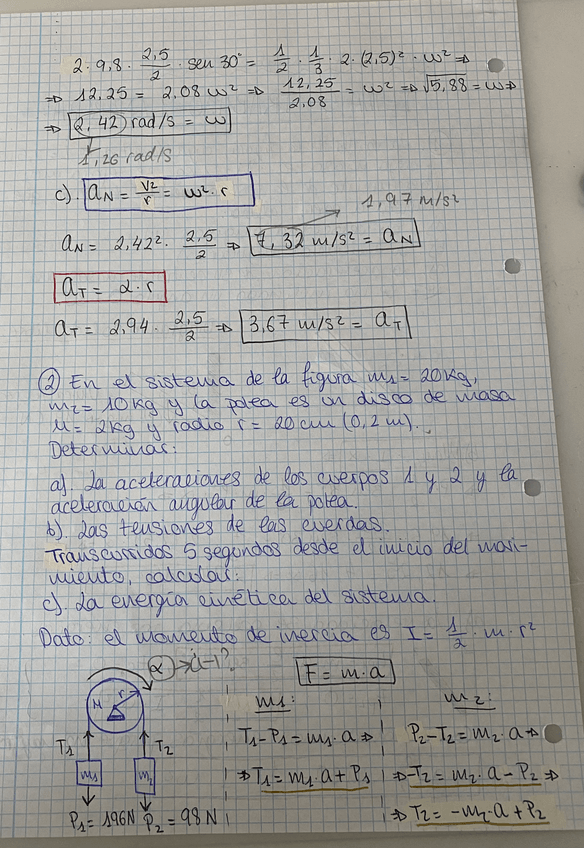 2 · 9,8 · 2,5/2 · sen 30° = 1/2 · 1/3 · 2 · (2,5)² · ω² ⇒
⇒ 12,25 = 2,08 ω² ⇒ 12,25/2,08 = ω² ⇒ √5,88 = ω ⇒
⇒ 2,42 rad/s = ω
1,26 rad/s
c). aN = v²/r = ω² · r
1,97 m/s²
aN = 2,42² · 2,5/2 ⇒ 7,32 m/s² = aN
aT = α · r
aT = 2,94 · 2,5/2 ⇒ 3,67 m/s² = aT
② En el sistema de la figura m1 = 20 kg,
m2 = 10 kg y la polea es un disco de masa
M = 2 kg y radio r = 20 cm (0,2 m).
Determinar:
a). La aceleraciones de los cuerpos 1 y 2 y la
aceleración angular de la polea.
b). Las tensiones de las cuerdas.
Transcurridos 5 segundos desde el inicio del movi-
miento, calcular:
c). La energía cinética del sistema.
Dato: el momento de inercia es I = 1/2 · m · r²
α → ¿-1?
F = m · a
M r
m1:
m2:
T1 T2
T1 - P1 = m1 · a ⇒
P2 - T2 = m2 · a ⇒
m1 m2
⇒ T1 = m1 · a + P1
⇒ -T2 = m2 · a - P2 ⇒
P1 = 196N P2 = 98 N
⇒ T2 = -m2 · a + P2